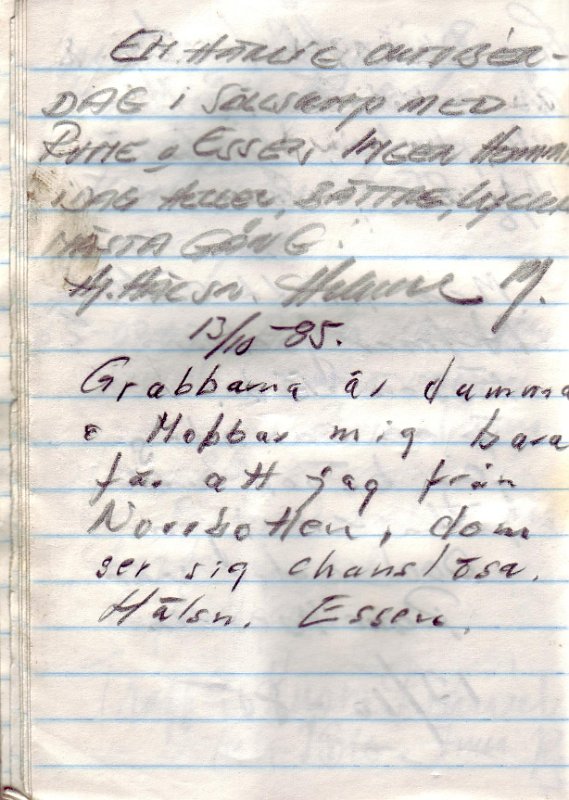 EN HÄRLIG OKTOBER-
DAG I SÄLLSKAP MED
RUNE o ESSEN, INGEN
IDAG HELLER, BÄTTRE LYCKA
NÄSTA GÅNG.
Hj. HÄLSN. M.
13/10 -85.
Grabbarna är dumma
o Mobbar mig bara
för att jag från
Norrbotten, dom
ger sig chanslösa.
Hälsn. Essen.